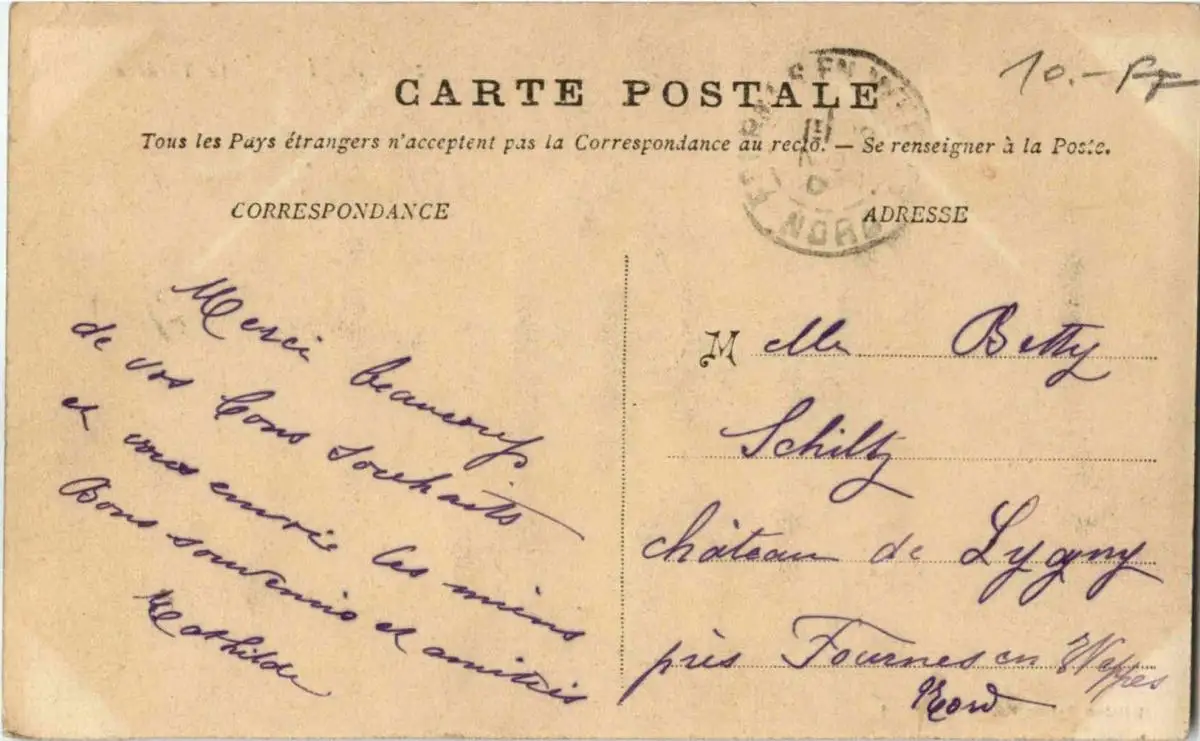 10.- FF
CARTE POSTALE
Tous les Pays étrangers n'acceptent pas la Correspondance au recto. — Se renseigner à la Poste.
CORRESPONDANCE
ADRESSE
Merci beaucoup
de vos bons souhaits
et vous envoie les miens
Bons souvenirs et amitiés
Mathilde
Melle Betty
Schiltz
château de Lygny
près Fournes en Weppes
Nord
FOURNES EN WEPPES
NORD